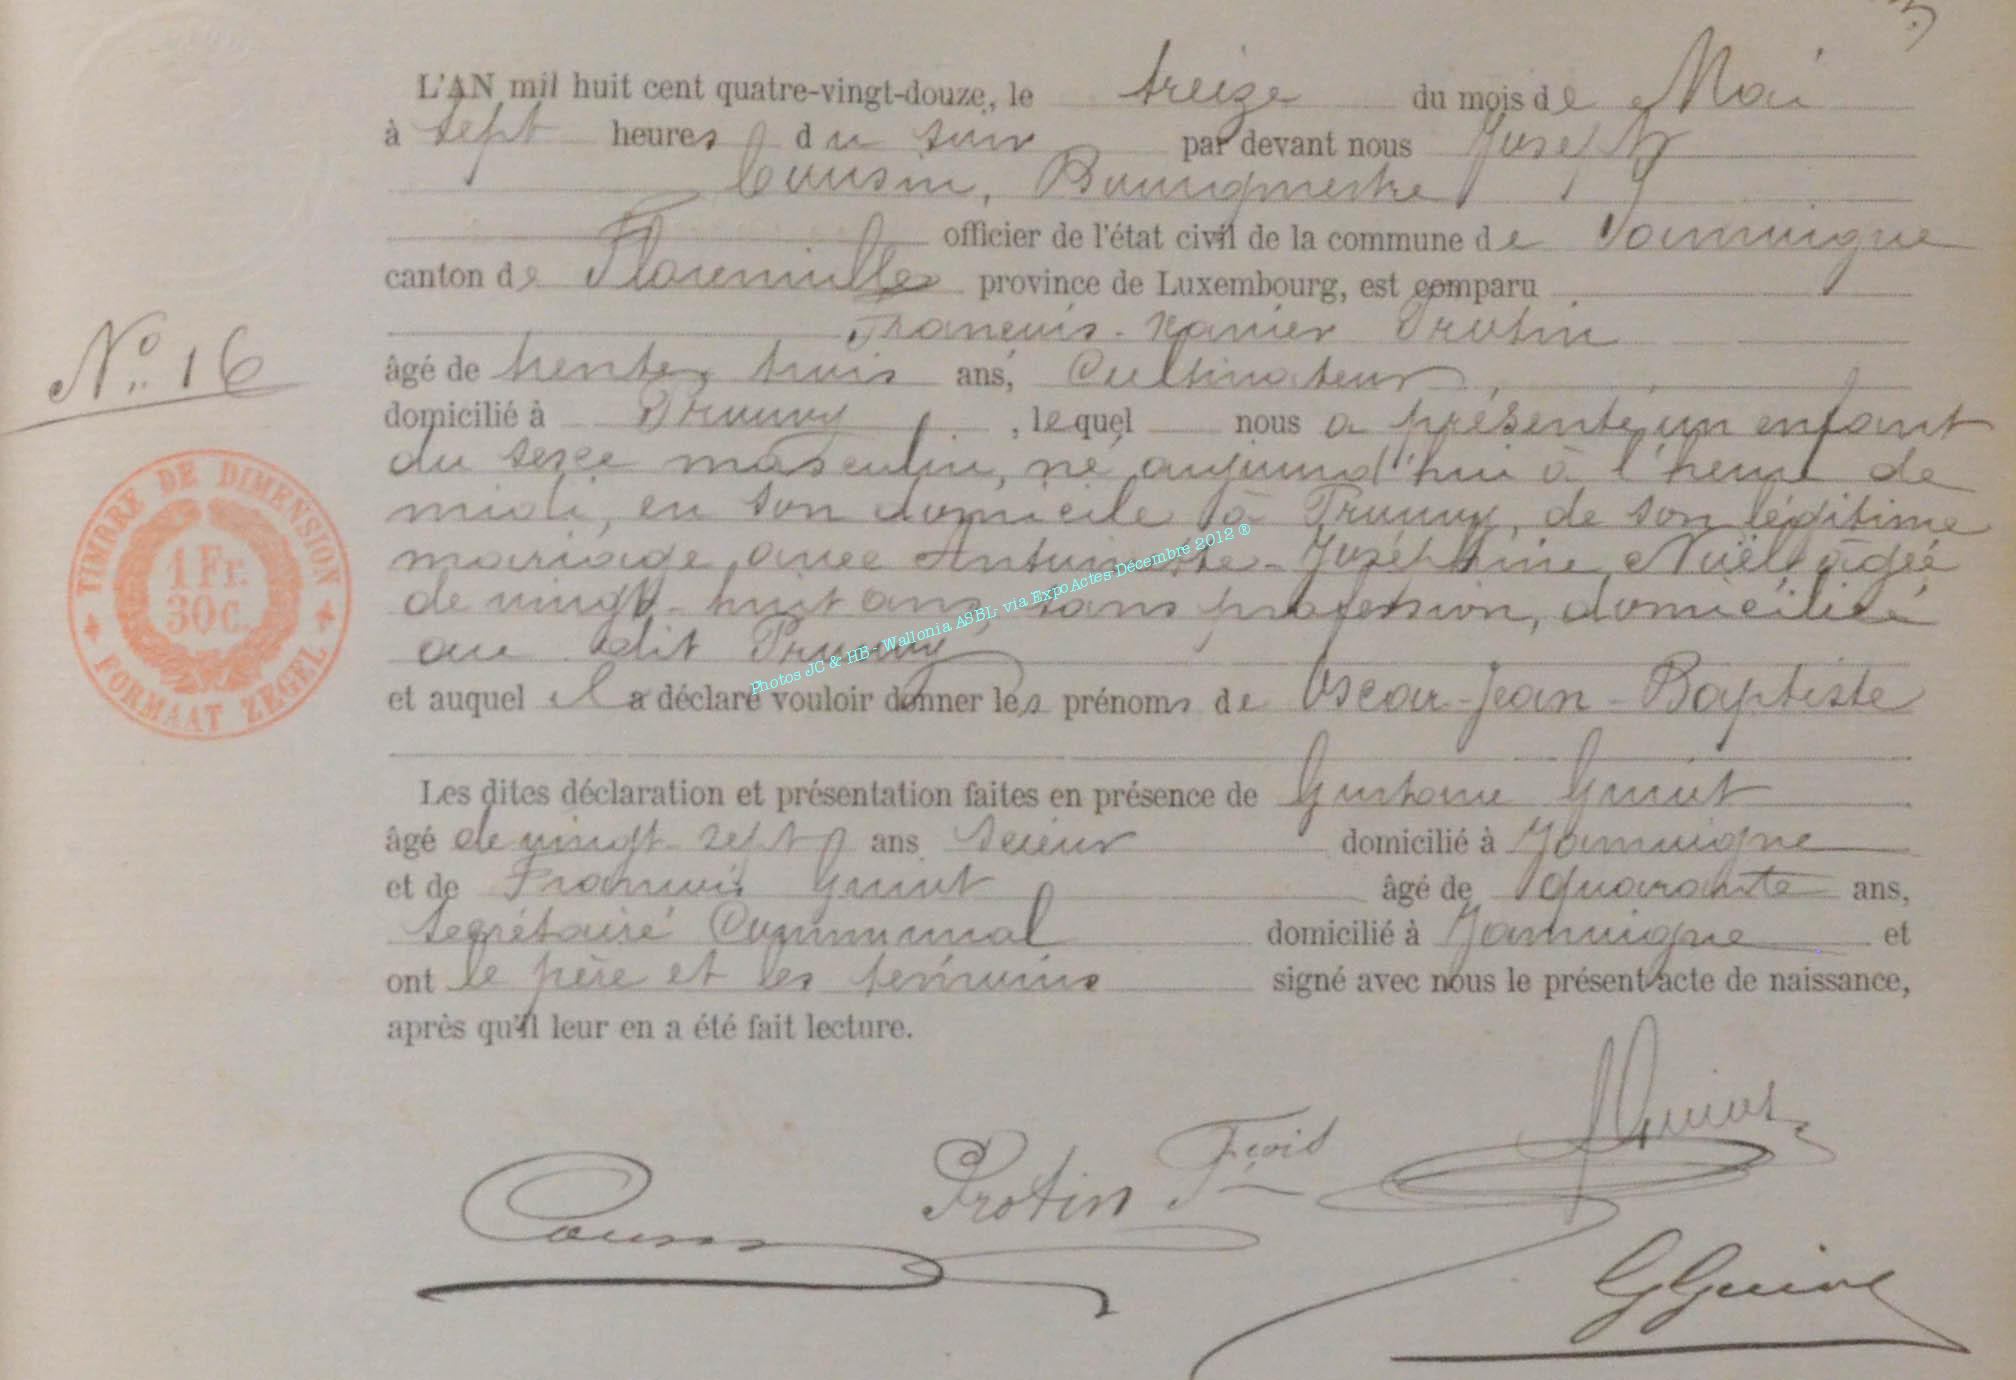 L'AN mil huit cent quatre-vingt-douze, le treize du mois de Mai
à sept heures du soir par devant nous Joseph
Cousin, Bourgmestre
officier de l'état civil de la commune de Jamoigne
canton de Florenville province de Luxembourg, est comparu
François-Xavier Protin
N° 16
âgé de trente trois ans, Cultivateur,
domicilié à Prouvy, lequel nous a présenté un enfant
du sexe masculin, né aujourd'hui à l'heure de
midi, en son domicile à Prouvy, de son légitime
mariage avec Antoinette-Joséphine Noël âgée
de vingt-huit ans, sans profession, domiciliée
au dit Prouvy
et auquel il a déclaré vouloir donner les prénoms de Oscar-Jean-Baptiste
TIMBRE DE DIMENSION
1 Fr.
30 c.
FORMAAT ZEGEL
Photos JC & HB - Wallonia ASBL- via ExpoActes-Décembre 2012 ®
Les dites déclaration et présentation faites en présence de Gustave Guiot
âgé de vingt sept ans Scieur domicilié à Jamoigne
et de François Guiot âgé de quarante ans,
Segrétaire Communal domicilié à Jamoigne et
ont le père et les témoins signé avec nous le présent acte de naissance,
après qu'il leur en a été fait lecture.
Guiot
Protin Fçois
Cousin
G Guiot